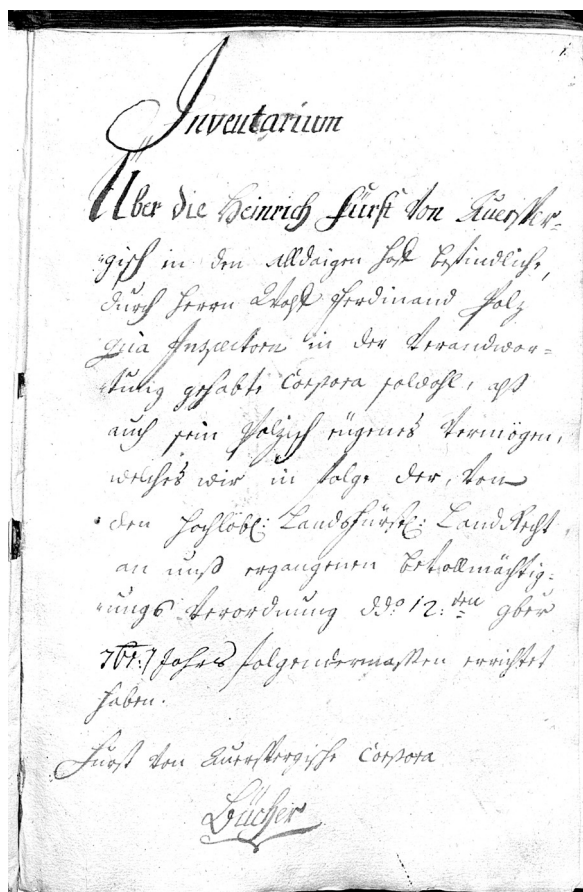 1.
Inventarium
Über die Heinrich Fürst Von Auersper-
gisch in den alldaigen Hoff befindliche,
durch Herrn Wolff Ferdinand Polz
qua Inspectorn in der Verandwor-
tung gehabte Corpora sowohl, alß
auch sein Polzisch eügenes Vermögen,
welches wir in folge der, Von
den Hochlöbl: Landsfürstl: LandRecht
an unß ergangenen bevollmächtig-
ungs Verordnung ddo 12:ten 9ber
Jahrs folgendermassen errichtet
haben.
Fürst Von Auerspergische Corpora
Bücher